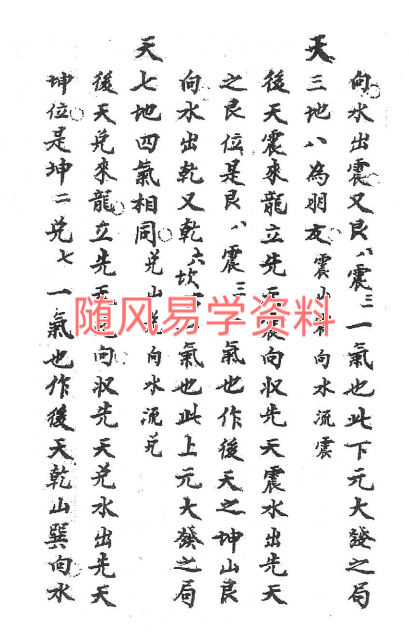 向水出震又艮八震三一氣也此下元大發之局
天三地八為朋友震山震向水流震
後天震來龍立先天震向収先天震水出先天
之艮位是艮八震三一氣也作後天之坤山艮
向水出乾又乾六坎一一氣也此上元大發之局
天七地四氣相同兑山兑向水流兑
後天兑來龍立先天兑向収先天兑水出先天
坤位是坤二兑七一氣也作後天乾山巽向水
随风易学资料